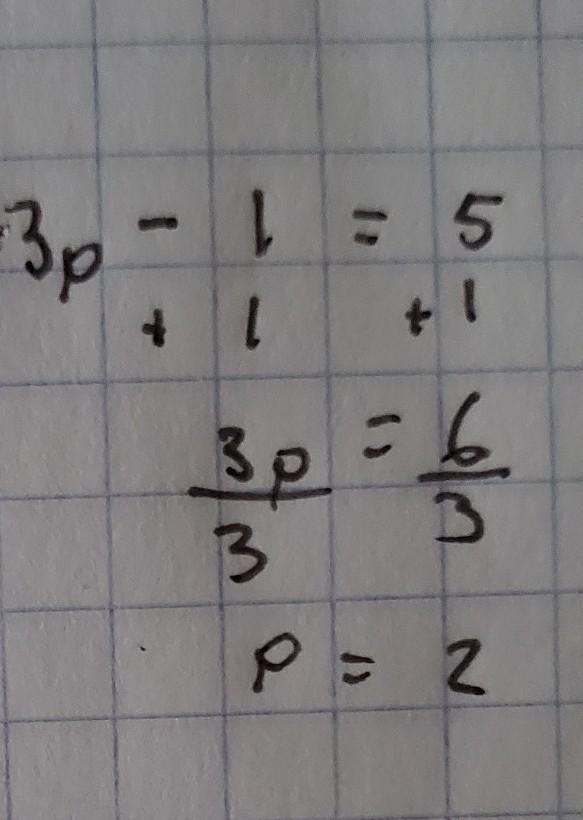 3p - 1 = 5
+ 1 + 1
3p = 6
3 3
p = 2